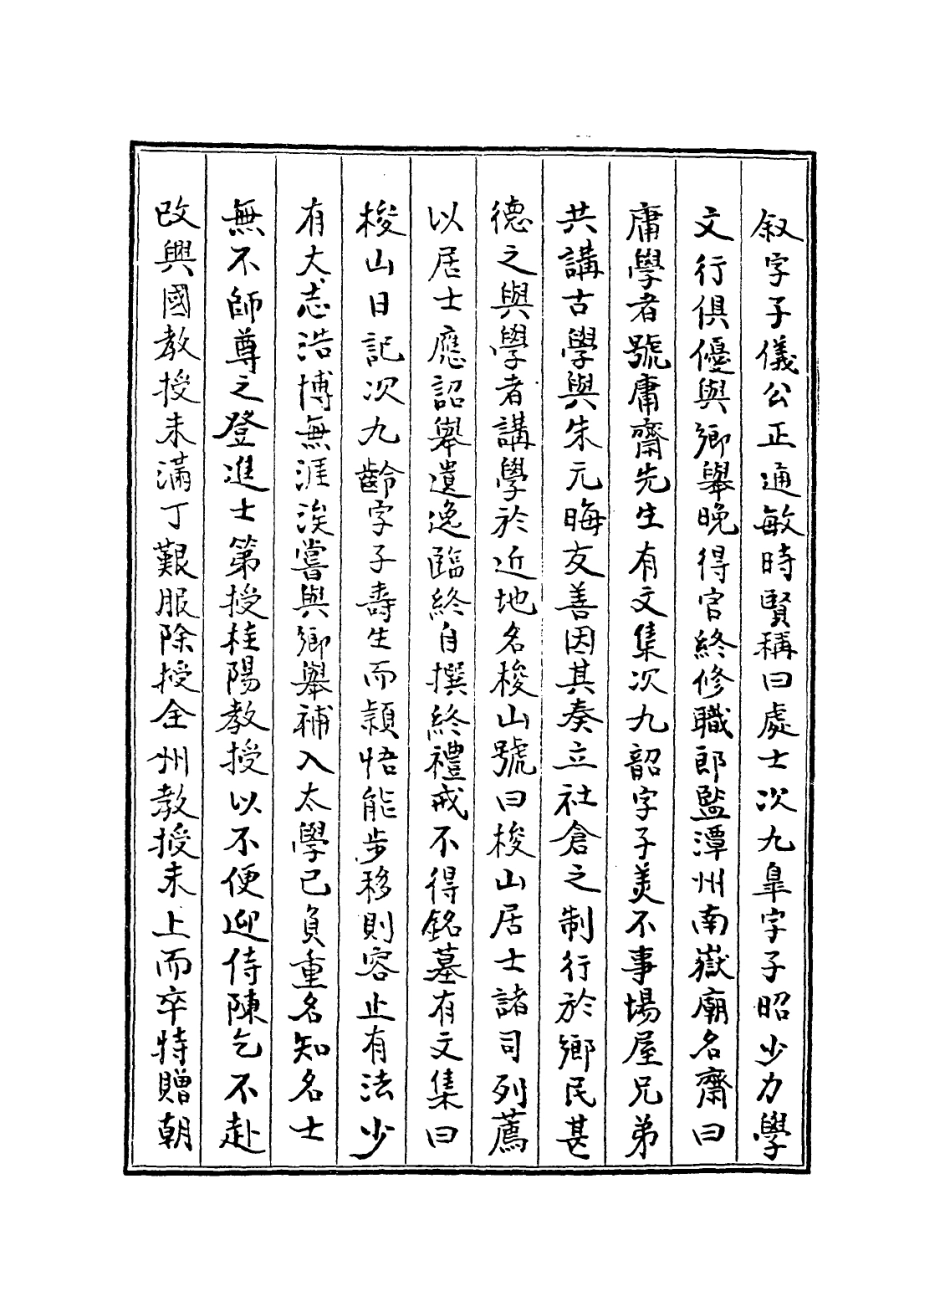 叙字子儀公正通敏時賢稱曰處士次九臯字子昭少力學
文行俱優與鄉舉晚得官終修職郎監潭州南嶽廟名齋曰
庸學者號庸齋先生有文集次九韶字子美不事場屋兄弟
共講古學與朱元晦友善因其奏立社倉之制行於鄉民甚
德之與學者講學於近地名梭山號曰梭山居士諸司列薦
以居士應詔舉遺逸臨終自撰終禮戒不得銘墓有文集曰
梭山日記次九齡字子壽生而穎悟能步移則容止有法少
有大志浩博無涯涘嘗與鄉舉補入太學已負重名知名士
無不師尊之登進士第授桂陽教授以不便迎侍陳乞不赴
改興國教授未滿丁艱服除授全州教授未上而卒特贈朝